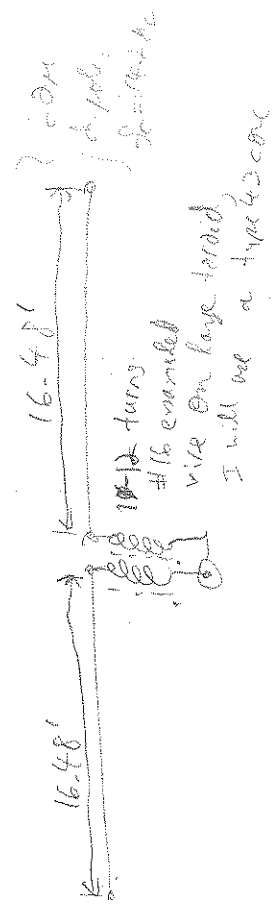 16.48'
16.48'
12 turns
#16 enameled
wire on large toroid,
I will use a type 43 core
dipole